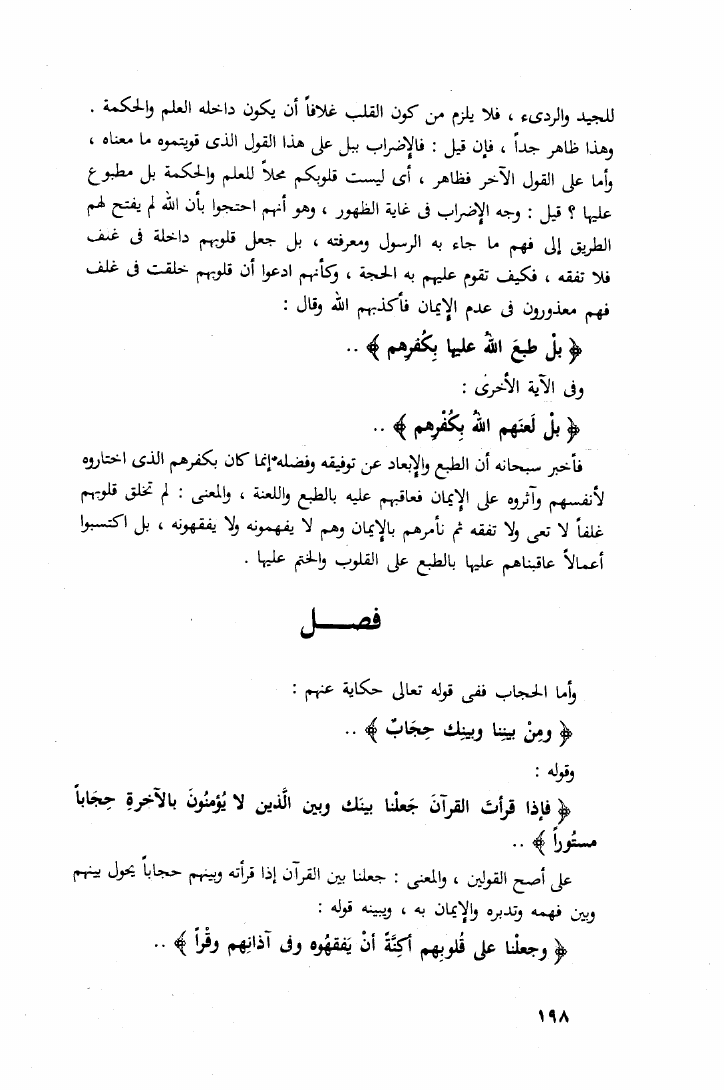 للجيد والردىء ، فلا يلزم من كون القلب غلافاً أن يكون داخله العلم والحكمة .
وهذا ظاهر جداً ، فإن قيل : فالإضراب ببل على هذا القول الذى قويتموه ما معناه ،
وأما على القول الآخر فظاهر ، أى ليست قلوبكم محلاً للعلم والحكمة بل مطبوع
عليها ؟ قيل : وجه الإضراب فى غاية الظهور ، وهو أنهم احتجوا بأن الله لم يفتح لهم
الطريق إلى فهم ما جاء به الرسول ومعرفته ، بل جعل قلوبهم داخلة فى غلف
فلا تفقه ، فكيف تقوم عليهم به الحجة ، وكأنهم ادعوا أن قلوبهم خلقت فى غلف
فهم معذورون فى عدم الإيمان فأكذبهم الله وقال :
﴿ بلْ طبعَ اللهُ عليها بِكُفرِهم ﴾ ..
وفى الآية الأخرى :
﴿ بلْ لَعنَهم اللهُ بِكُفْرِهم ﴾ ..
فأخبر سبحانه أن الطبع والإبعاد عن توفيقه وفضله إنما كان بكفرهم الذى اختاروه
لأنفسهم وآثروه على الإيمان فعاقبهم عليه بالطبع واللعنة ، والمعنى : لم تخلق قلوبهم
غلفاً لا تعى ولا تفقه ثم نأمرهم بالإيمان وهم لا يفهمونه ولا يفقهونه ، بل اكتسبوا
أعمالاً عاقبناهم عليها بالطبع على القلوب والختم عليها .
فصــــل
وأما الحجاب ففى قوله تعالى حكاية عنهم :
﴿ ومِنْ بيننا وبينِك حِجَابٌ ﴾ ..
وقوله :
﴿ فإذا قرأتَ القرآنَ جَعلْنا بينَك وبين الَّذين لا يُؤمنُونَ بالآخرةِ حِجَاباً
مستُوراً ﴾ ..
على أصح القولين ، والمعنى : جعلنا بين القرآن إذا قرأته وبينهم حجاباً يحول بينهم
وبين فهمه وتدبره والإيمان به ، ويبينه قوله :
﴿ وجعلْنا على قُلوبِهم أكِنَّةً أنْ يَفقهُوه وفى آذانِهم وقْراً ﴾ ..
١٩٨